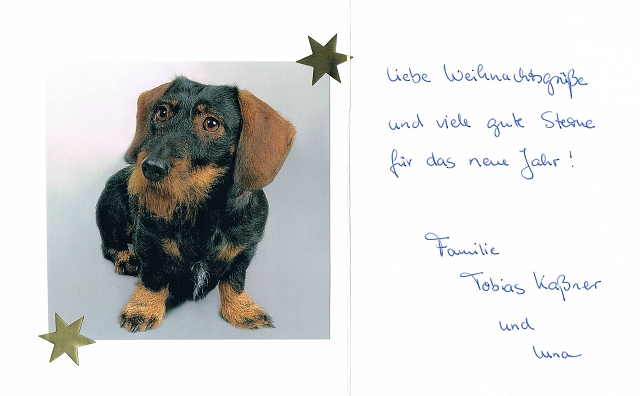 Liebe Weihnachtsgrüße
und viele gute Sterne
für das neue Jahr!
Familie
Tobias Kaßner
und
Luna